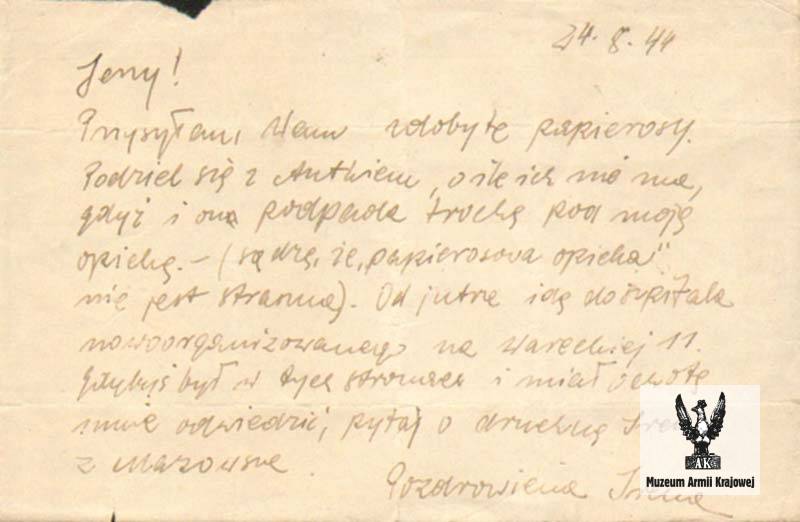 24.8.44
Jerzy!
Przysyłam Wam zdobyte papierosy.
Podziel się z Antkiem, o ile ich nie ma,
gdyż i on podpada trochę pod moją
opiekę. – (sądzę, że „papierosowa opieka"
nie jest straszna). Od jutra idę do szpitala
nowoorganizowanego na Wareckiej 11.
Gdybyś był w tych stronach i miał ochotę
mnie odwiedzić, pytaj o druhnę
z Mazowsza
Pozdrowienia Irena
AK
Muzeum Armii Krajowej